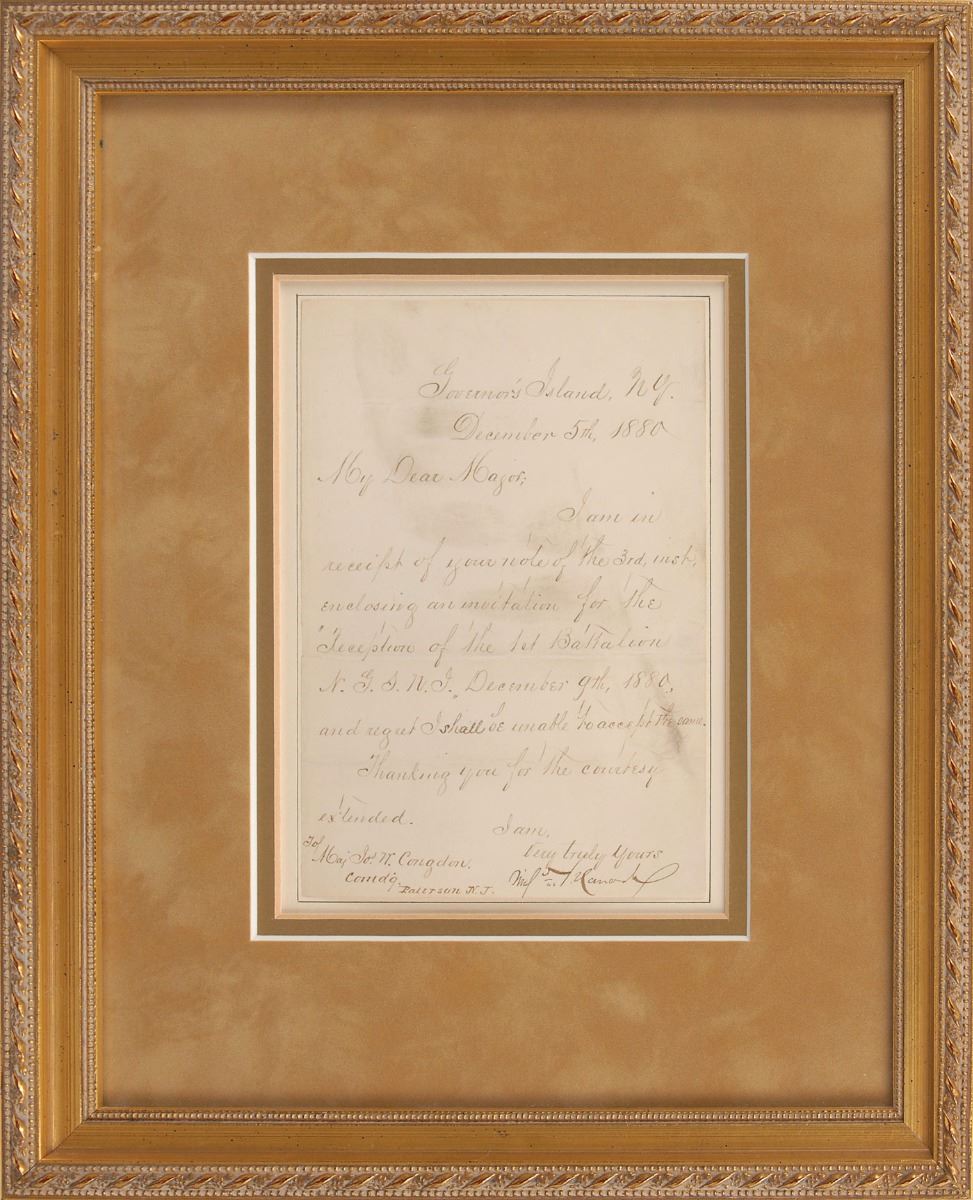 Governor's Island, N.Y.
December 5th, 1880
My Dear Major,
I am in
receipt of your note of the 3rd, inst,
enclosing an invitation for the
"Reception of the 1st Battalion
N. G. S. N. J." December 9th, 1880,
and regret I shall be unable to accept the same.
Thanking you for the courtesy
extended.
I am,
Very truly yours
Winf S. Hancock
To/
Maj Jos. W. Congdon.
Comd'g.
Paterson N. J.